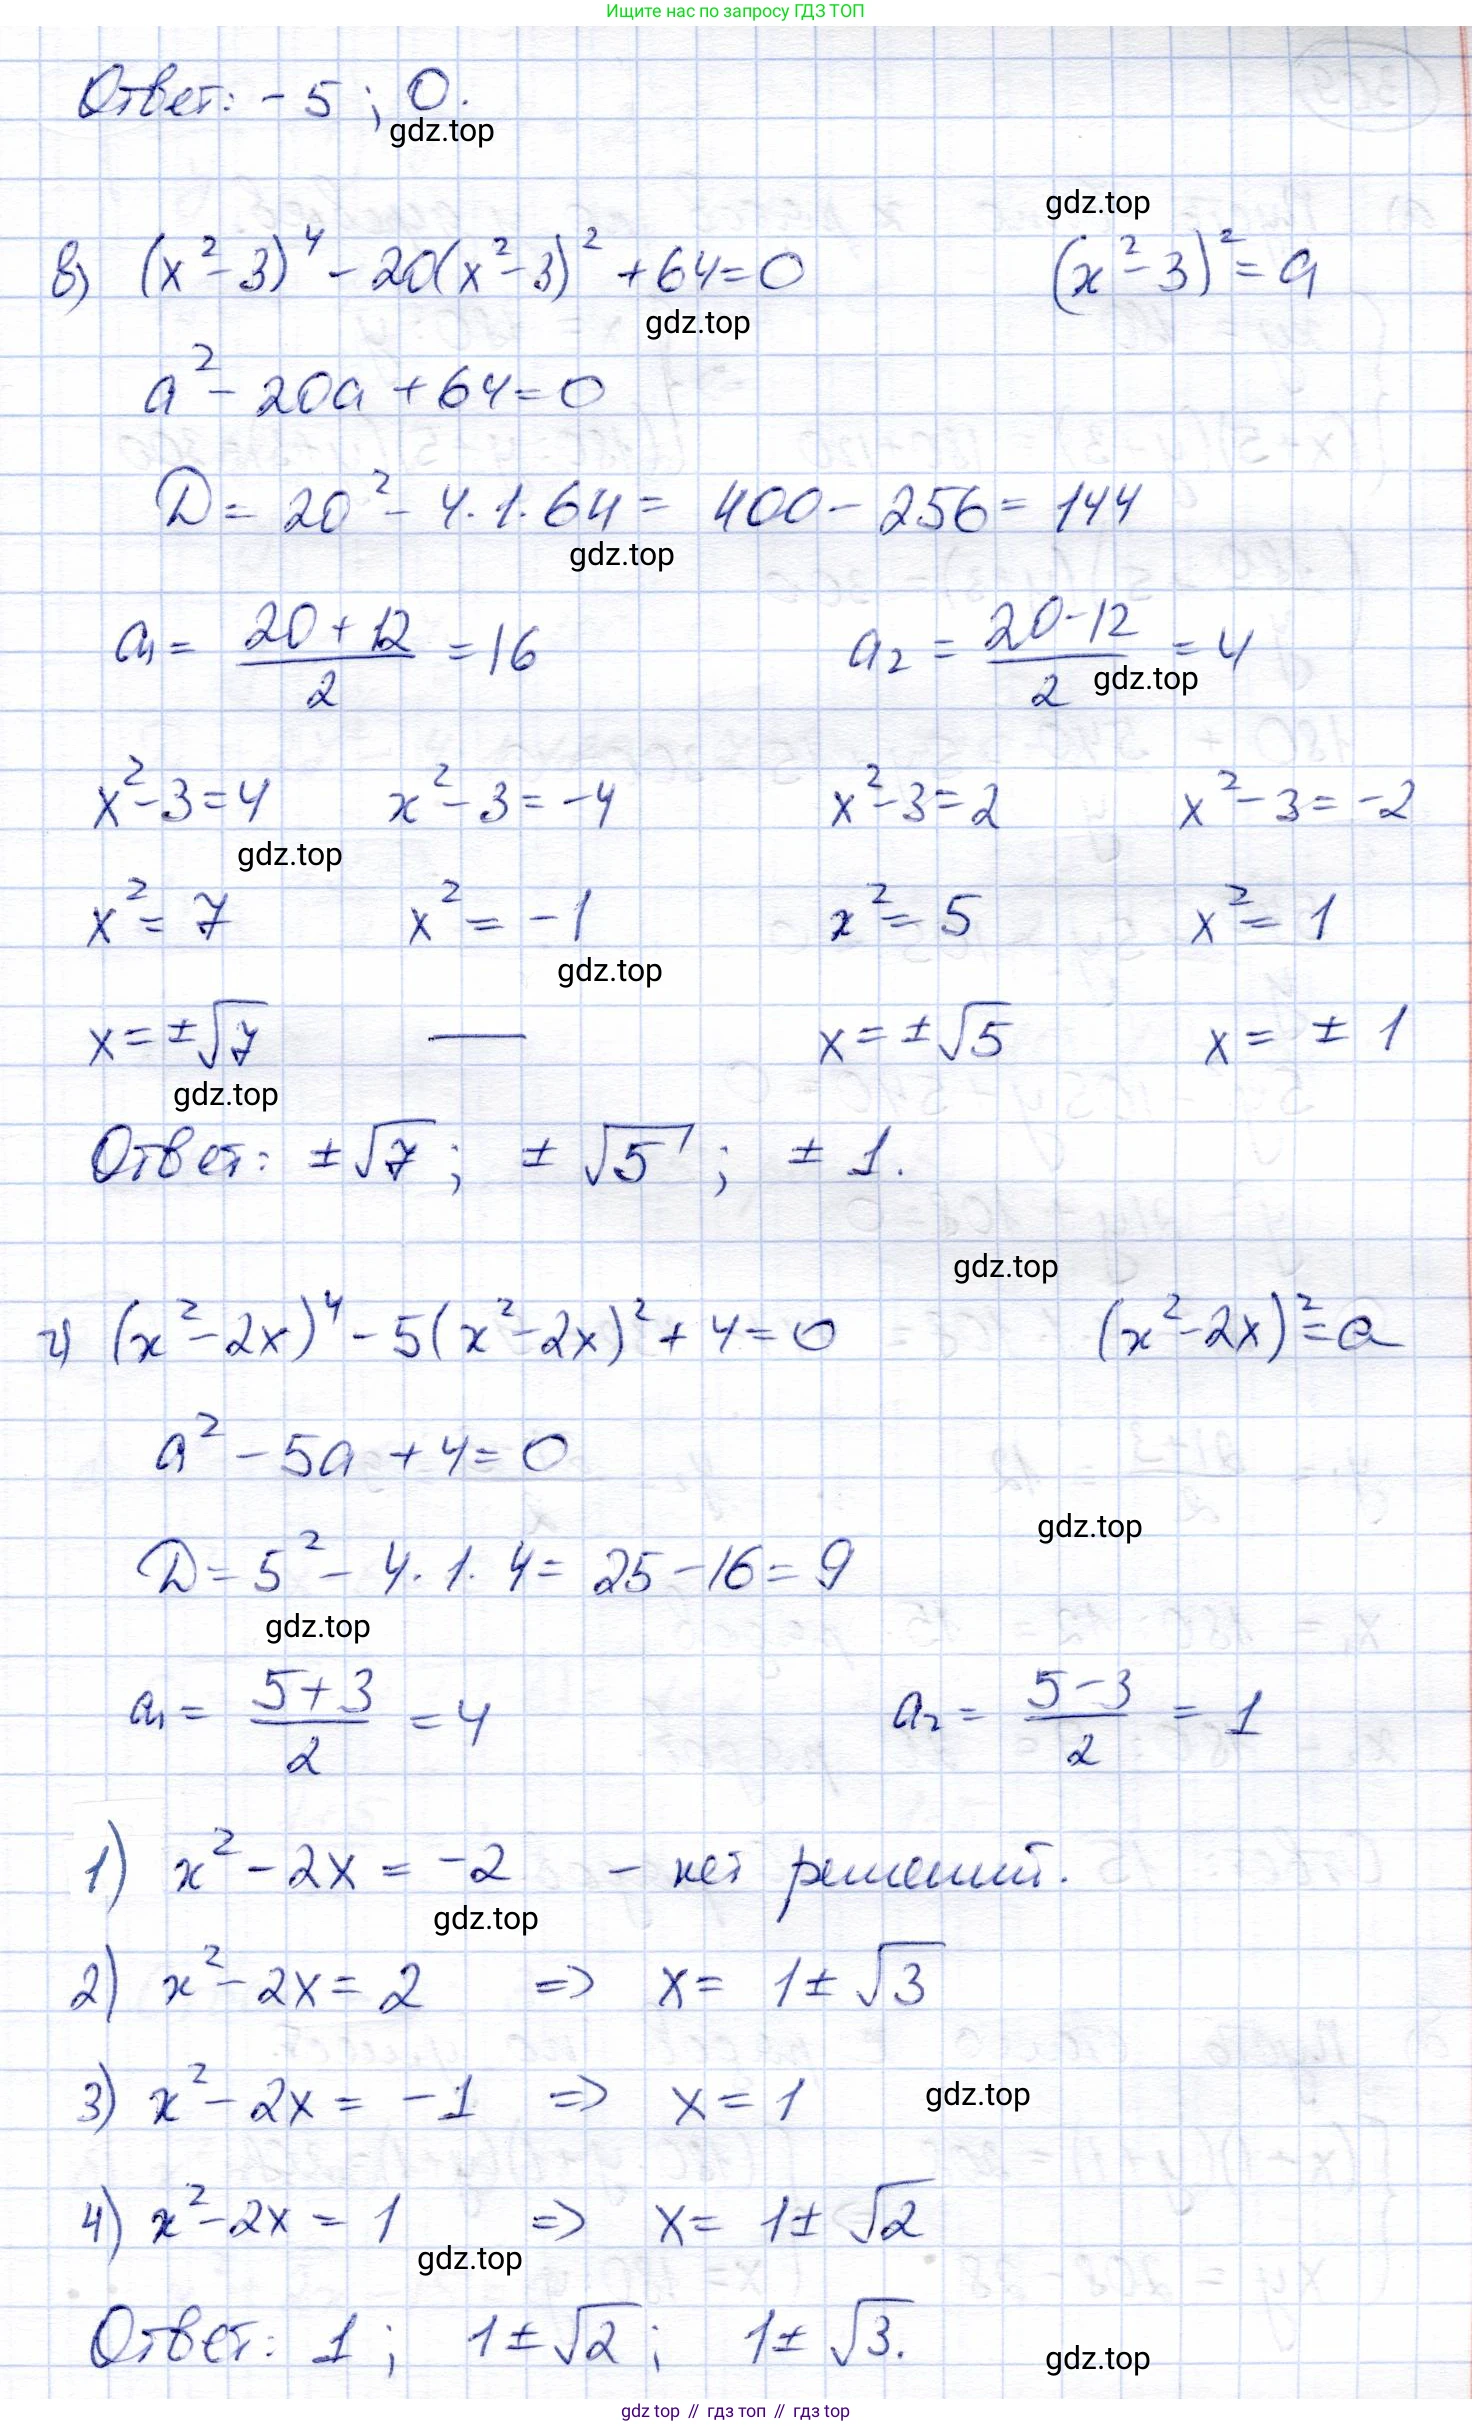 Ищите нас по запросу ГДЗ ТОП
Ответ: -5 ; 0.
gdz.top
gdz.top
в) (x²-3)⁴ - 20(x²-3)² + 64 = 0 (x²-3)² = a
gdz.top
a² - 20a + 64 = 0
D = 20² - 4·1·64 = 400 - 256 = 144
gdz.top
a₁ = (20+12)/2 = 16 a₂ = (20-12)/2 = 4
gdz.top
x²-3=4 x²-3=-4 x²-3=2 x²-3=-2
gdz.top
x²=7 x²=-1 x²=5 x²=1
gdz.top
x=±√7 — x=±√5 x=±1
gdz.top
Ответ: ±√7; ±√5; ±1.
gdz.top
г) (x²-2x)⁴ - 5(x²-2x)² + 4 = 0 (x²-2x)² = a
a² - 5a + 4 = 0
gdz.top
D = 5² - 4·1·4 = 25 - 16 = 9
gdz.top
a₁ = (5+3)/2 = 4 a₂ = (5-3)/2 = 1
1) x²-2x = -2 - нет решений.
gdz.top
2) x²-2x = 2 => x = 1±√3
3) x²-2x = -1 => x = 1
gdz.top
4) x²-2x = 1 => x = 1±√2
gdz.top
Ответ: 1; 1±√2; 1±√3.
gdz.top
gdz top // гдз топ // gdz top